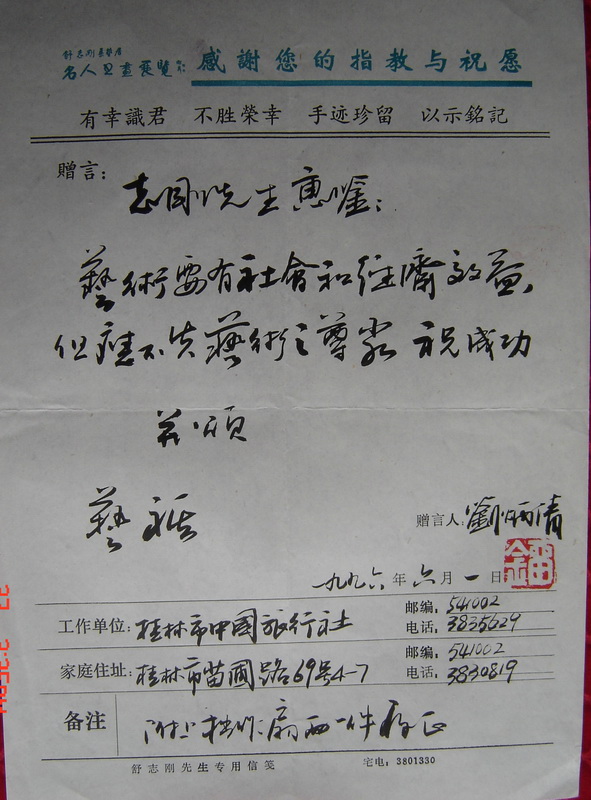 舒志刚景艺展
名人卫画展览 感謝您的指教与祝愿
有幸識君 不胜榮幸 手迹珍留 以示銘記
赠言：
志刚先生惠鉴：
藝術要有社會和经濟效益，
但应不失藝術之尊嚴 祝成功
并頌
藝祺
赠言人：劉炳清
一九九六年六月一日
工作单位：桂林市中國旅行社 邮编：541002 电话：3835629
家庭住址：桂林市苗圃路69号4-7 邮编：541002 电话：3830819
备注 附上拙作扇面一件存正
舒志刚先生专用信笺 宅电：3801330